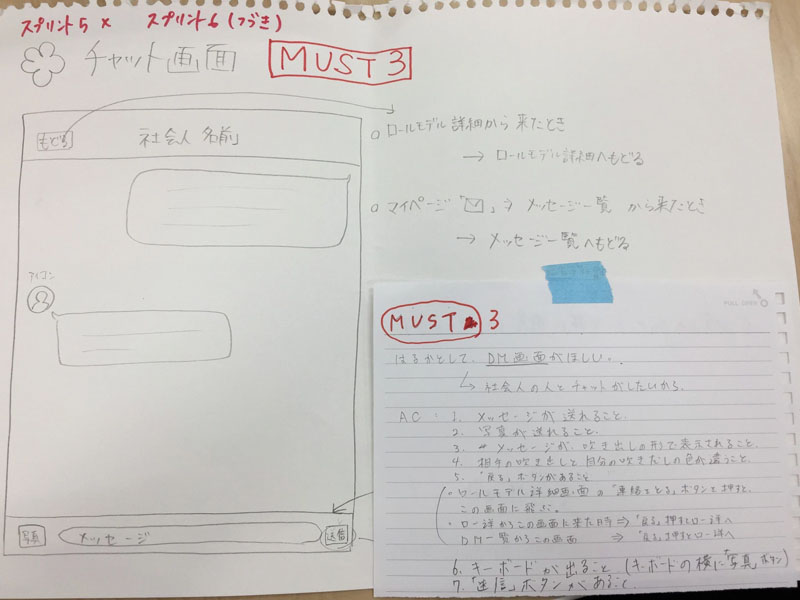 スプリント5 × スプリント6 (つづき)
チャット画面 MUST 3
もどる 社会人 名前
ロールモデル詳細から来たとき
→ ロールモデル詳細へもどる
マイページ「✉」→ メッセージ一覧 から来たとき
→ メッセージ一覧へもどる
アイコン
写真 メッセージ 送信
PULL OPEN
MUST 3
はるかとして、DM画面がほしい。
社会人の人とチャットがしたいから。
AC : 1. メッセージが送れること.
2. 写真が送れること.
3. メッセージが、吹き出しの形で表示されること.
4. 相手の吹き出しと自分の吹きだしの色が違うこと.
5. 「戻る」ボタンがあること
・ロールモデル詳細画面の「連絡をとる」ボタンを押すと、
この画面に飛ぶ。
・ロー詳からこの画面に来た時 ⇒ 「戻る」押すとロー詳へ
DM一覧からこの画面 ⇒ 「戻る」押すとロー詳へ
6. キーボードが出ること (キーボードの横に「写真」ボタン)
7. 「送信」ボタンがあること